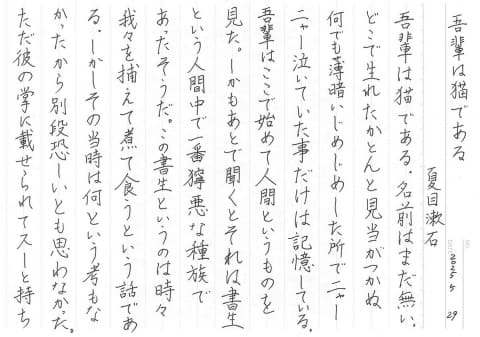 吾輩は猫である
夏目漱石
吾輩は猫である。名前はまだ無い。
どこで生れたかとんと見当がつかぬ
何でも薄暗いじめじめした所でニャー
ニャー泣いていた事だけは記憶している。
吾輩はここで始めて人間というものを
見た。しかもあとで聞くとそれは書生
という人間中で一番獰悪な種族で
あったそうだ。この書生というのは時々
我々を捕えて煮て食うという話であ
る。しかしその当時は何という考もな
かったから別段恐しいとも思わなかった。
ただ彼の掌に載せられてスーと持ち